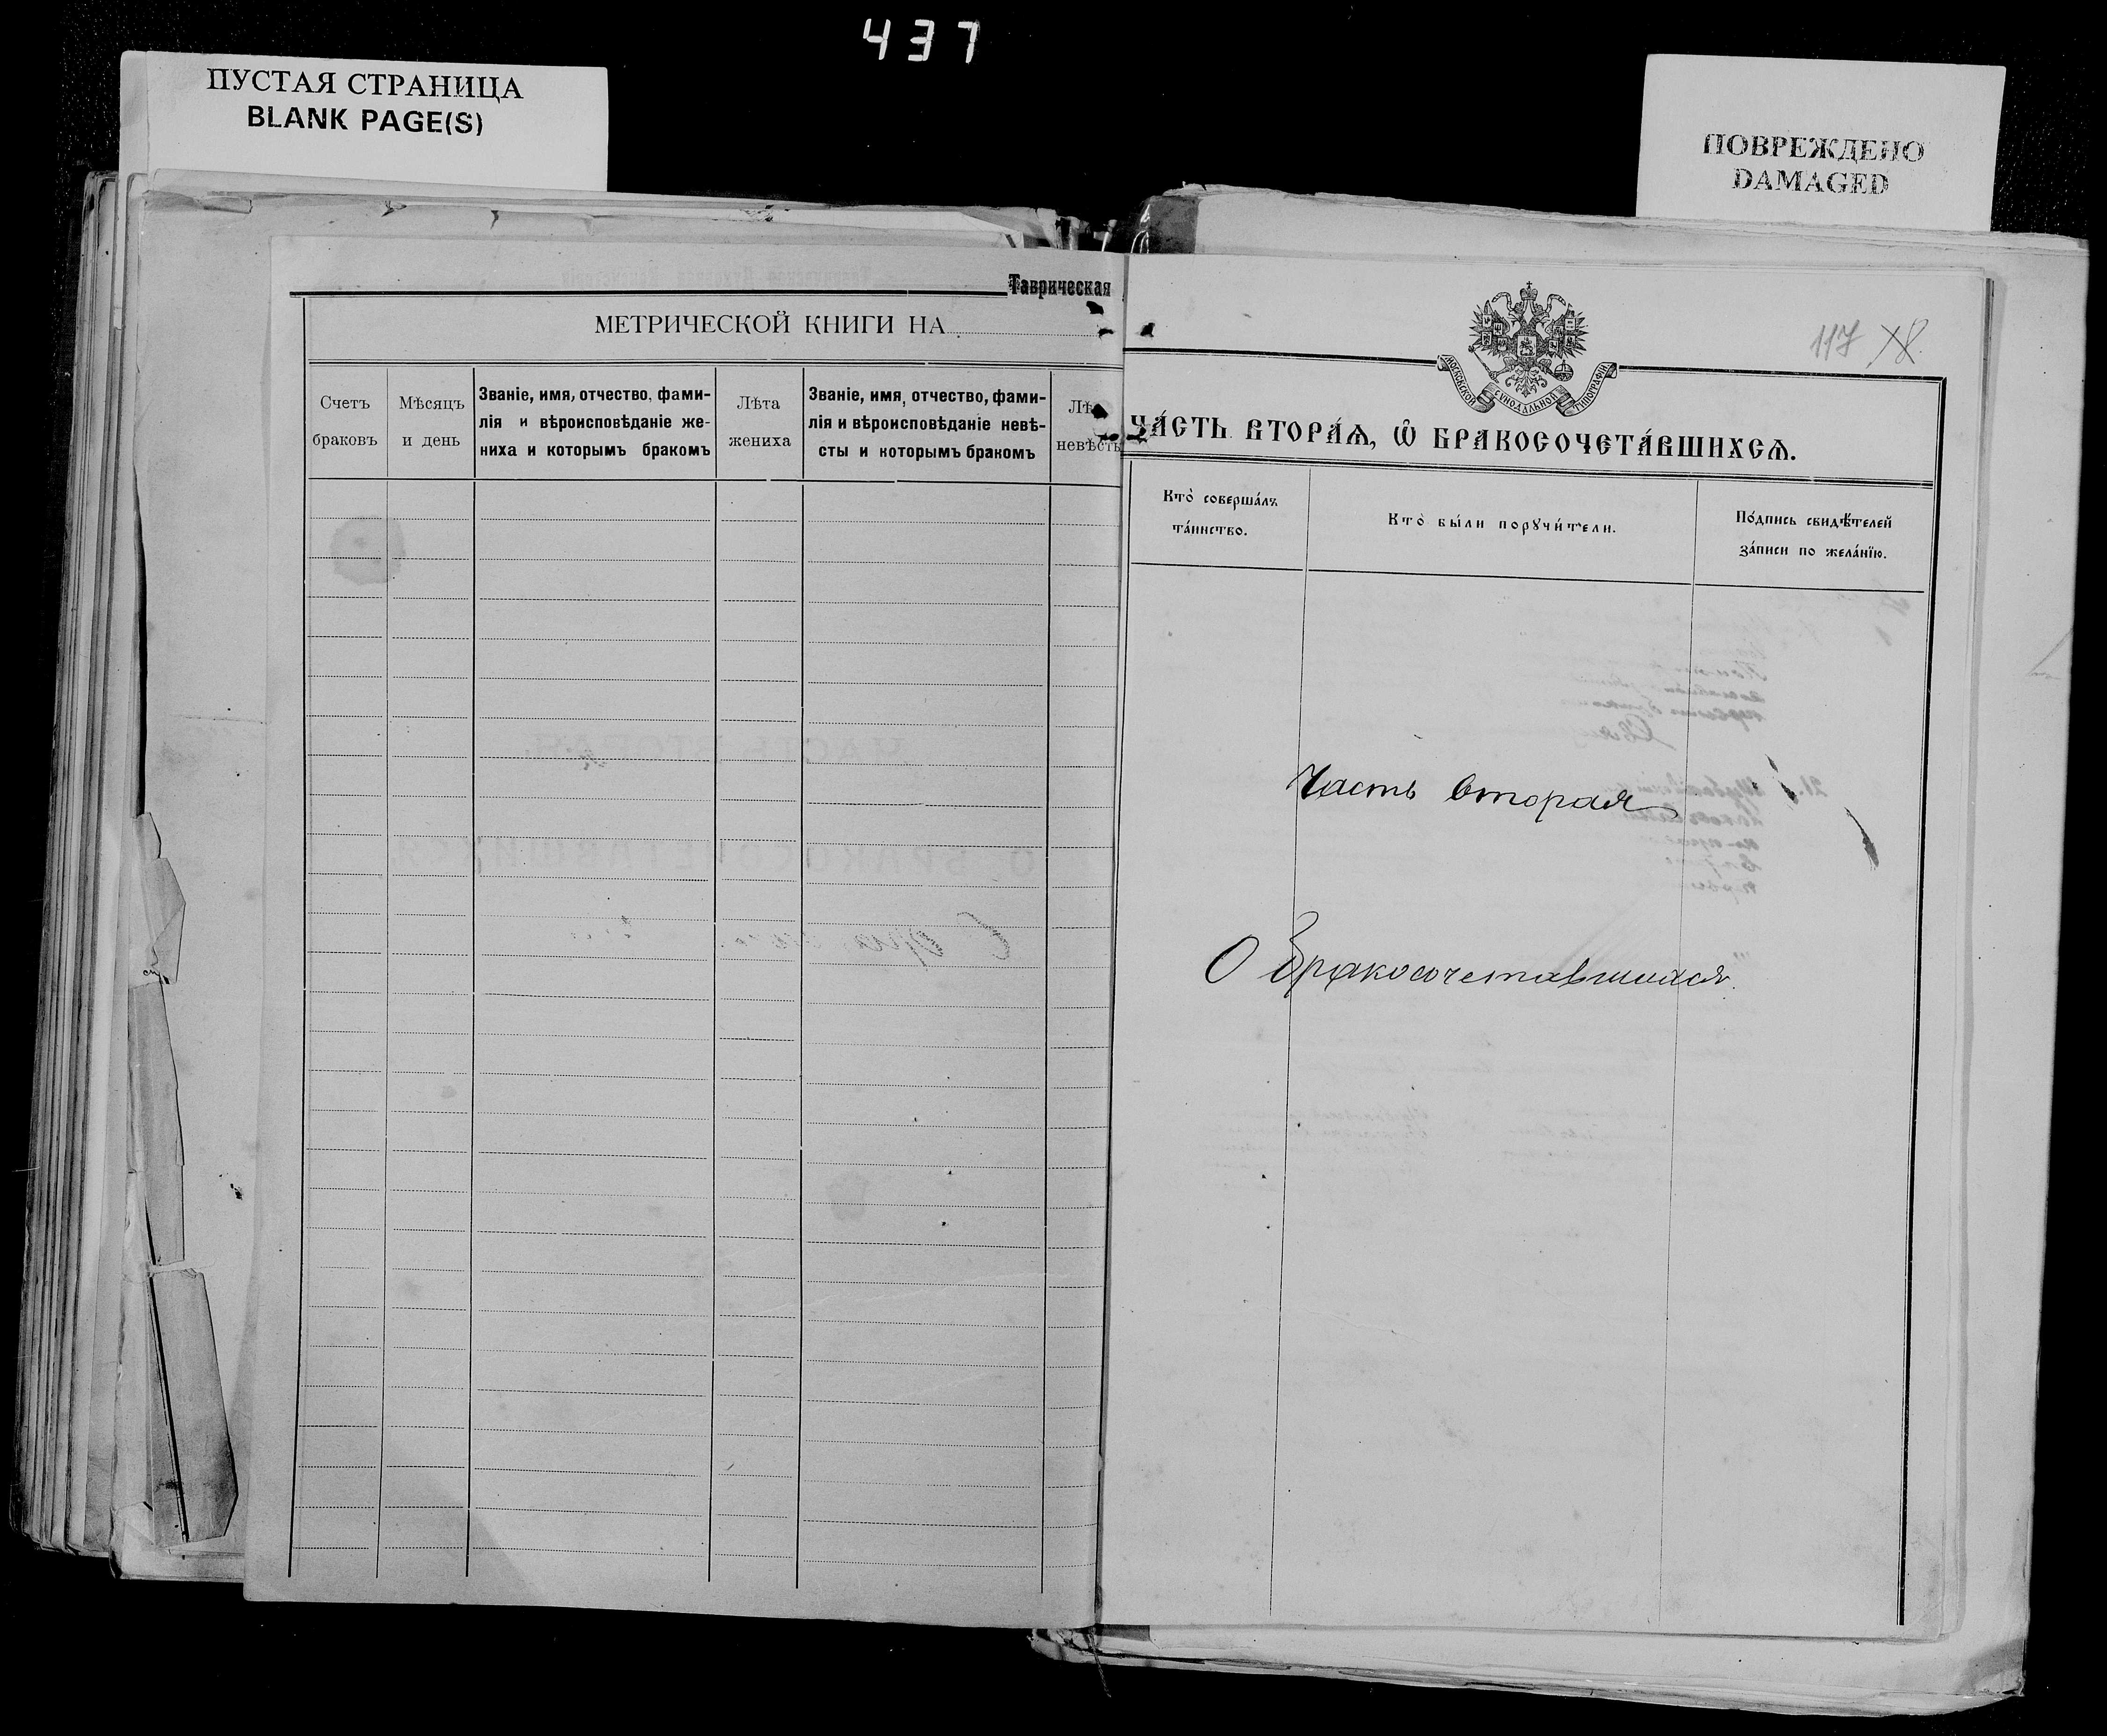 437
ПУСТАЯ СТРАНИЦА
BLANK PAGE(S)
ПОВРЕЖДЕНО
DAMAGED
Таврическая
МЕТРИЧЕСКОЙ КНИГИ НА
Счетъ
браковъ
Мѣсяцъ
и день
Званіе, имя, отчество, фами-
лія и вѣроисповѣданіе же-
ниха и которымъ бракомъ
Лѣта
жениха
Званіе, имя, отчество, фами-
лія и вѣроисповѣданіе невѣ-
сты и которымъ бракомъ
Лѣ
невѣсты
117
МОСКОВСКОЙ СѴНОДАЛЬНОЙ ТИПОГРАФІИ
ЧА́СТЬ ВТОРА́Ѧ, Ѽ БРАКОСОЧЕТА́ВШИХСѦ.
Кто̀ соверша́лъ
та́инство.
Кто̀ бы́ли порꙋчи́тели.
По́дпись свидѣ́телей
за́писи по жела́нїю.
Часть вторая
О Бракосочетавшихся.